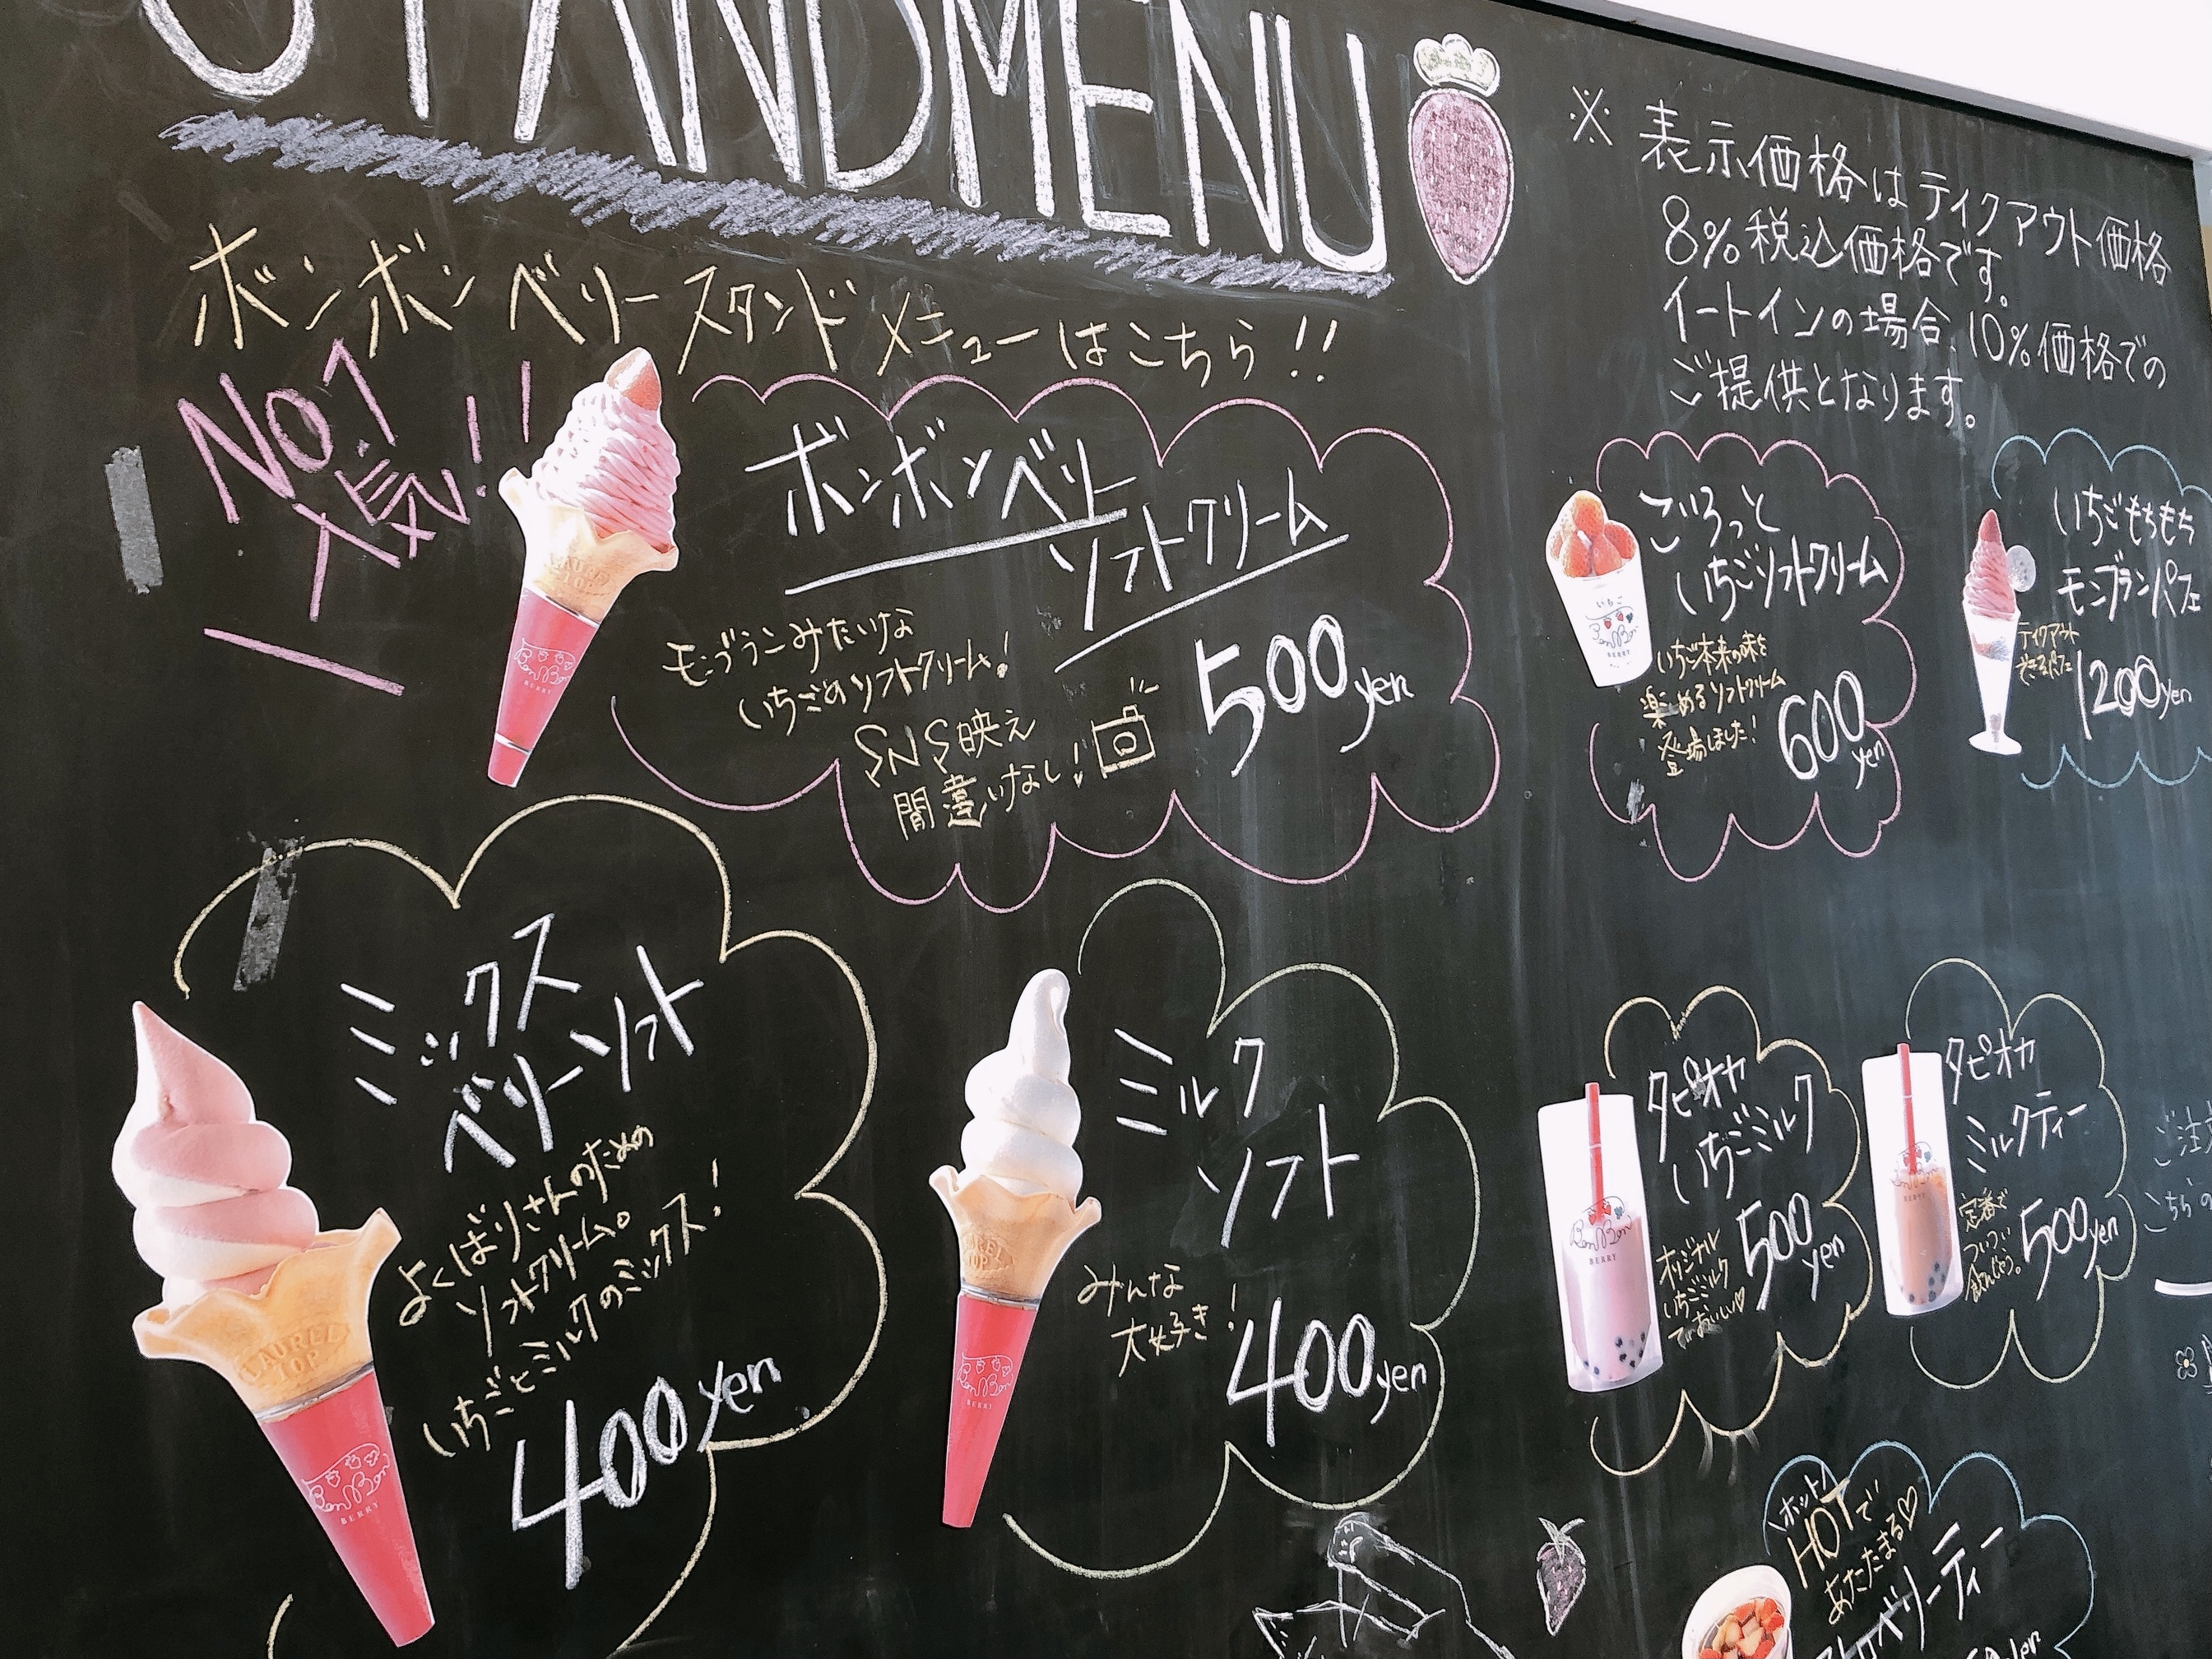 STANDMENU
ボンボンベリースタンドメニューはこちら!!
※表示価格はテイクアウト価格
8%税込価格です。
イートインの場合、10%価格での
ご提供となります。
NO.1
人気!!
ボンボンベリー
ソフトクリーム
モンブランみたいな
いちごのソフトクリーム!
SNS映え
間違いなし!
500yen
ごろっと
いちごソフトクリーム
いちご本来の味を
楽しめるソフトクリーム
登場しました!
600yen
いちごもちもち
モンブランパフェ
テイクアウト
1200yen
ミックス
ベリーソフト
よくばりさんのための
ソフトクリーム。
いちごとミルクのミックス!
400yen
ミルク
ソフト
みんな
大好き!
400yen
タピオカ
いちごミルク
オリジナル
いちごミルク
500yen
タピオカ
ミルクティー
定番で
ついつい
飲んじゃう。
500yen
ホット
HOTで
あたたまる♡
ストロベリーティー
いちご
BonBon
BERRY
BonBon
BERRY
LAUREL
TOP
BonBon
BERRY
BonBon
BERRY
BonBon
BERRY